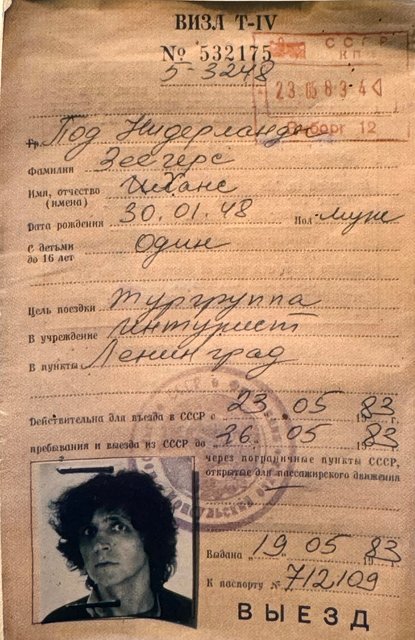 ВИЗА Т-IV
№ 532175
5-3248
СССР
КПП
23 05 83 4
Выборг 12
Гр. Под Нидерланды
Фамилия Зеегерс
Имя, отчество
(имена)
Дата рождения 30.01.48 Пол муж
С детьми
до 16 лет один
Цель поездки тургруппа
В учреждение Интурист
В пункты Ленинград
Действительна для въезда в СССР с 23 . 05 1983 г.
пребывания и выезда из СССР до 26 . 05 1983 г.
через пограничные пункты СССР,
открытые для пассажирского движения
Выдана „19„ 05 1983 г.
К паспорту № 712109
ВЫЕЗД